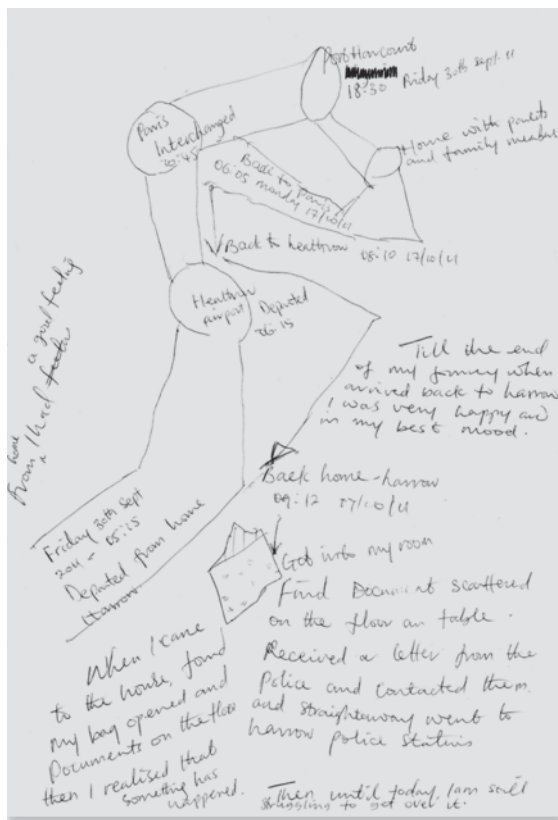 PortHarcourt
18:30 Friday 30th Sept. 11
Paris
Interchanged
10:45
Home with parents
and family member
Back to Paris
06:05 monday 17/10/11
Back to heathrow 08:10 17/10/11
Heathrow
airport
Departed
06:15
From home I had a good feeling
Till the end
of my journey when
arrived back to harrow
I was very happy and
in my best mood.
Back home - harrow
09:12 17/10/11
Friday 30th Sept
2011 - 05:15
Departed from home
Harrow
Got into my room
Find Document scattered
on the floor an table.
Received a letter from the
Police and contacted them.
and straightaway went to
harrow police station
When I came
to the house, found
my bag opened and
Documents on the floor
then I realised that
something has
happened.
Then until today, I am still
struggling to get over it.